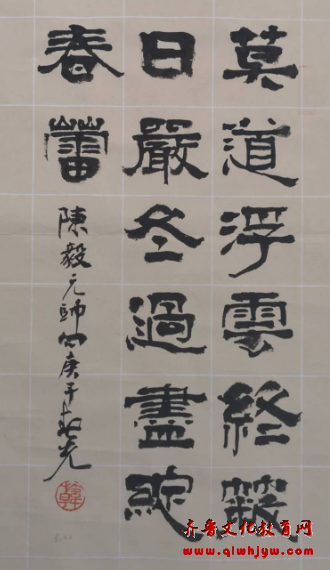 莫道浮雲終蔽
日嚴冬過盡綻
春蕾
陳毅元帥句庚子
齐鲁文化教育网
www.qlwhjyw.com